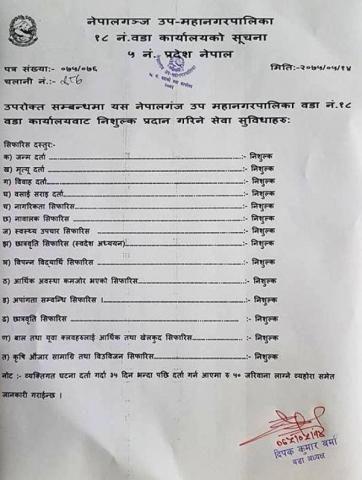 नेपालगञ्ज उप-महानगरपालिका
१८ नं.वडा कार्यालयको सूचना
५ नं. प्रदेश नेपाल
पत्र संख्या:- ०७५/०७६
मिति:-२०७५/०५/१४
चलानी नं.:-
उपरोक्त सम्बन्धमा यस नेपालगंज उप महानगरपालिका वडा नं.१८
वडा कार्यालयवाट निशुल्क प्रदान गरिने सेवा सुविधाहरुः
सिफारिस दस्तुर:-
क) जन्म दर्ता ........ निशुल्क
ख) मृत्यू दर्ता ........ निशुल्क
ग) विवाह दर्ता ........ निशुल्क
घ) वसाई सराइ दर्ता ........ निशुल्क
च) नागरिकता सिफारिस ........ निशुल्क
छ) नावालक सिफारिस ........ निशुल्क
ज) स्वस्थ्य उपचार सिफारिस ........ निशुल्क
झ) छात्रवृति सिफारिस (स्वदेश अध्ययन) ........ निशुल्क
ञ) विपन्न विद्यार्थि सिफारिस ........ निशुल्क
ठ) आर्थिक अवस्था कमजोर भएको सिफारिस ........ निशुल्क
ड) अपांगता सम्वन्धि सिफारिस । ........ निशुल्क
ढ) छात्रवृति सिफारिस ........ निशुल्क
ण) बाल तथा युवा क्लवहरुलाई आर्थिक तथा खेलकुद सिफारिस ........ निशुल्क
त) कृषि औजार सामाग्रि तथा विउविजन सिफारिस ........ निशुल्क
नोट :- व्यक्तिगत घटना दर्ता गर्दा ३५ दिन भन्दा पछि दर्ता गर्न आएमा रु ५० जरिवाना लाग्ने व्यहोरा समेत
जानकारी गराईन्छ ।
दिपक कुमार वर्मा
वडा अध्यक्ष